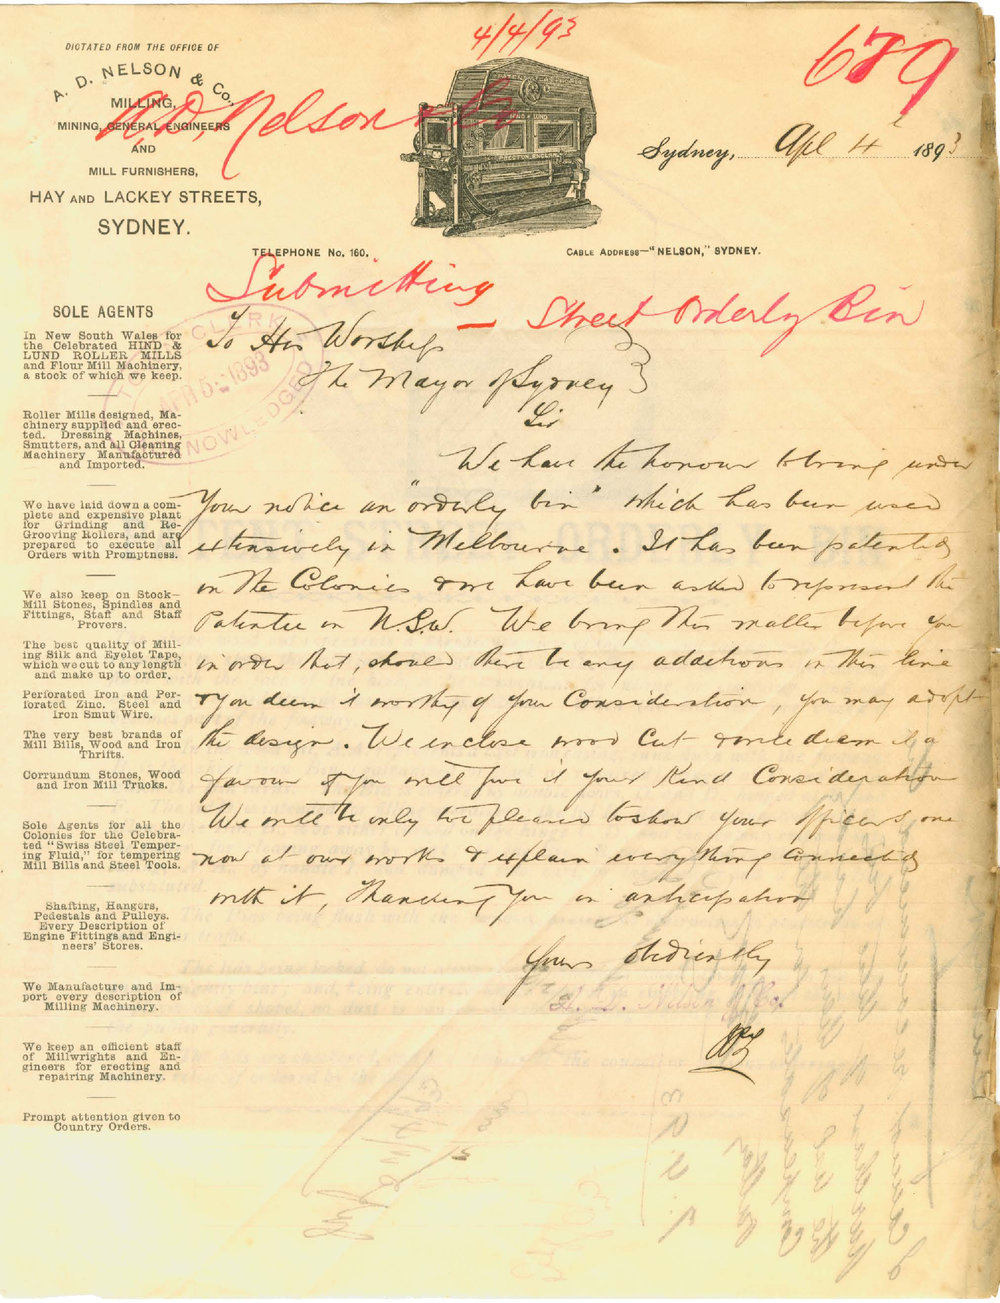 4/4/93
689
DICTATED FROM THE OFFICE OF
A. D. NELSON & Co.,
MILLING,
MINING, GENERAL ENGINEERS
AND
MILL FURNISHERS,
HAY AND LACKEY STREETS,
SYDNEY.
A.D. Nelson & Co
Sydney, Apl 4th 1893
TELEPHONE No. 160.
CABLE ADDRESS—"NELSON," SYDNEY.
Submitting — Street Orderly Bin
TOWN CLERK
APR 5 1893
ACKNOWLEDGED
SOLE AGENTS
In New South Wales for
the Celebrated HIND &
LUND ROLLER MILLS
and Flour Mill Machinery,
a stock of which we keep.
Roller Mills designed, Ma-
chinery supplied and erec-
ted. Dressing Machines,
Smutters, and all Cleaning
Machinery Manufactured
and Imported.
We have laid down a com-
plete and expensive plant
for Grinding and Re-
Grooving Rollers, and are
prepared to execute all
Orders with Promptness.
We also keep on Stock—
Mill Stones, Spindles and
Fittings, Staff and Staff
Provers.
The best quality of Mill-
ing Silk and Eyelet Tape,
which we cut to any length
and make up to order.
Perforated Iron and Per-
forated Zinc. Steel and
Iron Smut Wire.
The very best brands of
Mill Bills, Wood and Iron
Thrifts.
Corrundum Stones, Wood
and Iron Mill Trucks.
Sole Agents for all the
Colonies for the Celebra-
ted "Swiss Steel Temper-
ing Fluid," for tempering
Mill Bills and Steel Tools.
Shafting, Hangers,
Pedestals and Pulleys.
Every Description of
Engine Fittings and Engi-
neers' Stores.
We Manufacture and Im-
port every description of
Milling Machinery.
We keep an efficient staff
of Millwrights and En-
gineers for erecting and
repairing Machinery.
Prompt attention given to
Country Orders.
To His Worship
The Mayor of Sydney
Sir
We have the honour to bring under
Your notice an "orderly bin" which has been used
extensively in Melbourne. It has been patented
in the Colonies & we have been asked to represent the
Patentee in N.S.W. We bring this matter before you
in order that, should there be any additions in this line
& you deem it worthy of your Consideration, you may adopt
the design. We enclose wood cut & will deem it a
favour if you will give it your Kind Consideration
We will be only too pleased to show your Officers, one
now at our works & explain everything connected
with it, Thanking you in anticipation
Yours obediently
A. D. Nelson & Co.